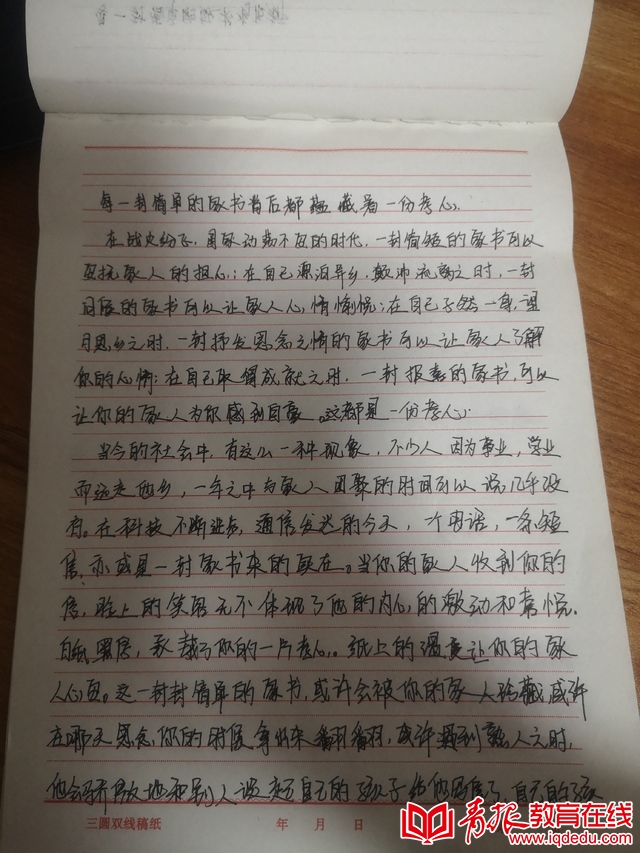 每一封简单的家书背后都蕴藏着一份孝心。
在战火纷飞,国家动荡不安的时代,一封简短的家书可以
安抚家人的担心;在自己漂泊异乡,之时,一封
的家书可以让家人心情愉悦;在自己孑然一身,望
月思乡之时,一封抒发思念之情的家书可以让家人了解
你的心情;在自己取得成就之时,一封报喜的家书,可以
让你的家人为你感到自豪。这都是一份孝心。
当今的社会中,有这么一种现象,不少人因为事业,学业
而远走他乡,一年之中与家人团聚的时间可以说几乎没
有。在科技不断进步,通信发达的今天,一个电话,一条短
信,亦或是一封家书来的实在。当你的家人收到你的
信,脸上的笑容无不体现了他的内心的激动和喜悦。
白纸黑字,承载了你的一片孝心。纸上的温度让你的家
人心安。这一封封简单的家书,或许会被你的家人珍藏,或许
在哪天思念你的时候拿出来翻翻,或许遇到熟人之时,
他会骄傲地和别人谈起自己的孩子给他写信了,自己的孩
三圆双线稿纸 年 月 日
青报教育在线
www.iqdedu.com